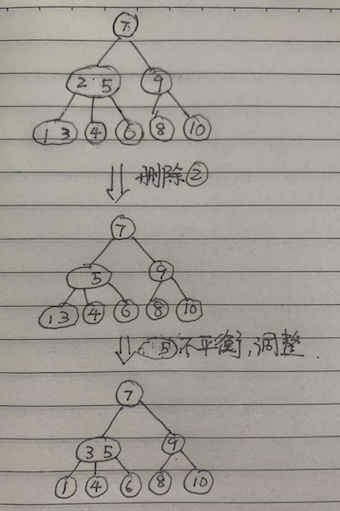 7
2 5 9
1 3 4 6 8 10
删除②
7
5 9
1 3 4 6 8 10
5不平衡,调整.
7
3 5 9
1 4 6 8 10